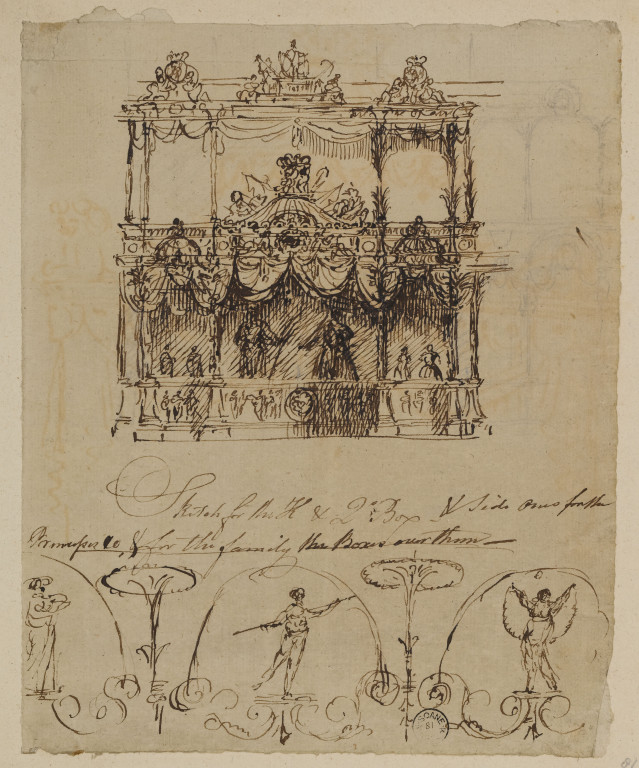 Sketch for the K & Qs Box & Side ones for the
Princesses &c, & for the family the Boxes over them